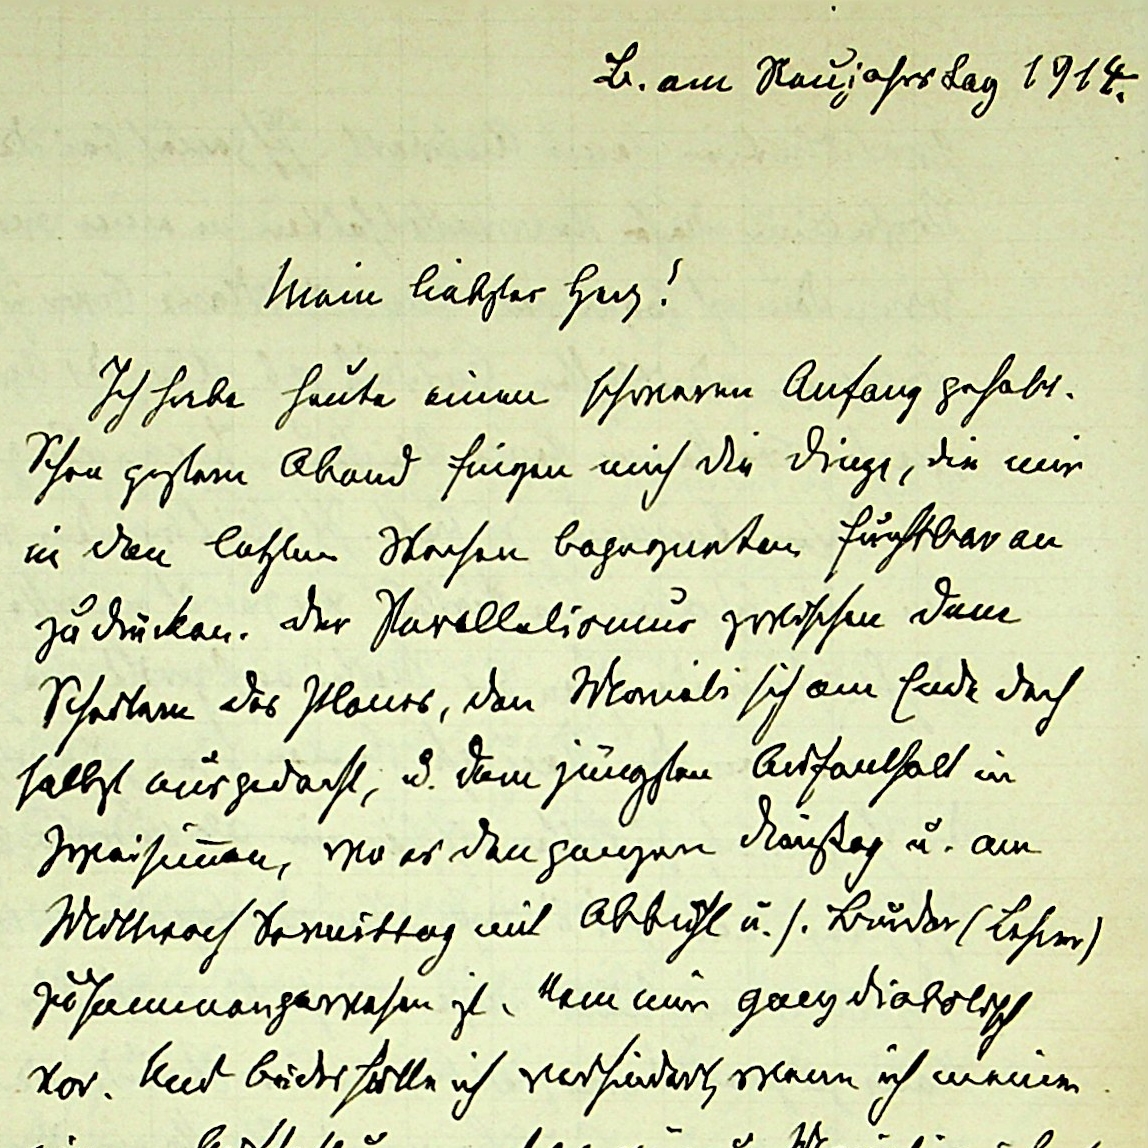 B. am Neujahrstag 1914.
Mein liebstes Herz!
Ich habe heute einen schweren Anfang gehabt.
Schon gestern Abend fingen mich die Dinge, die mir
in den letzten Wochen begegneten furchtbar an
zu drücken. Der Parallelismus zwischen dem
Scheitern des Planes, den sich am Ende doch
selbst ausgedacht, u. dem jüngsten Aufenthalt in
Zweisimmen, wo er den ganzen Dienstag u. am
Mittwoch Vormittag mit Abbühl u. s. Bruder (Lehrer)
zusammengewesen ist, kam mir ganz diabolisch
vor. Und beides hätte ich verhindert, wenn ich meinem